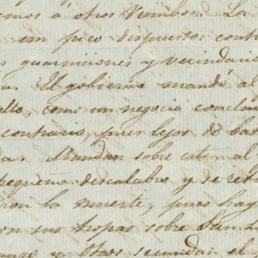 emos a otros rumbos. La
em poco dispuestos contra
guarniciones y vecindario
as El gobierno mandó al
allo, como un negocio conclui
contrario, pues lejos de bat
das. Mundan sobre caten al
pequeño descalabro y de re
ron la muerte, pues hay
on sus tropas sobre San L
y otros secundan el